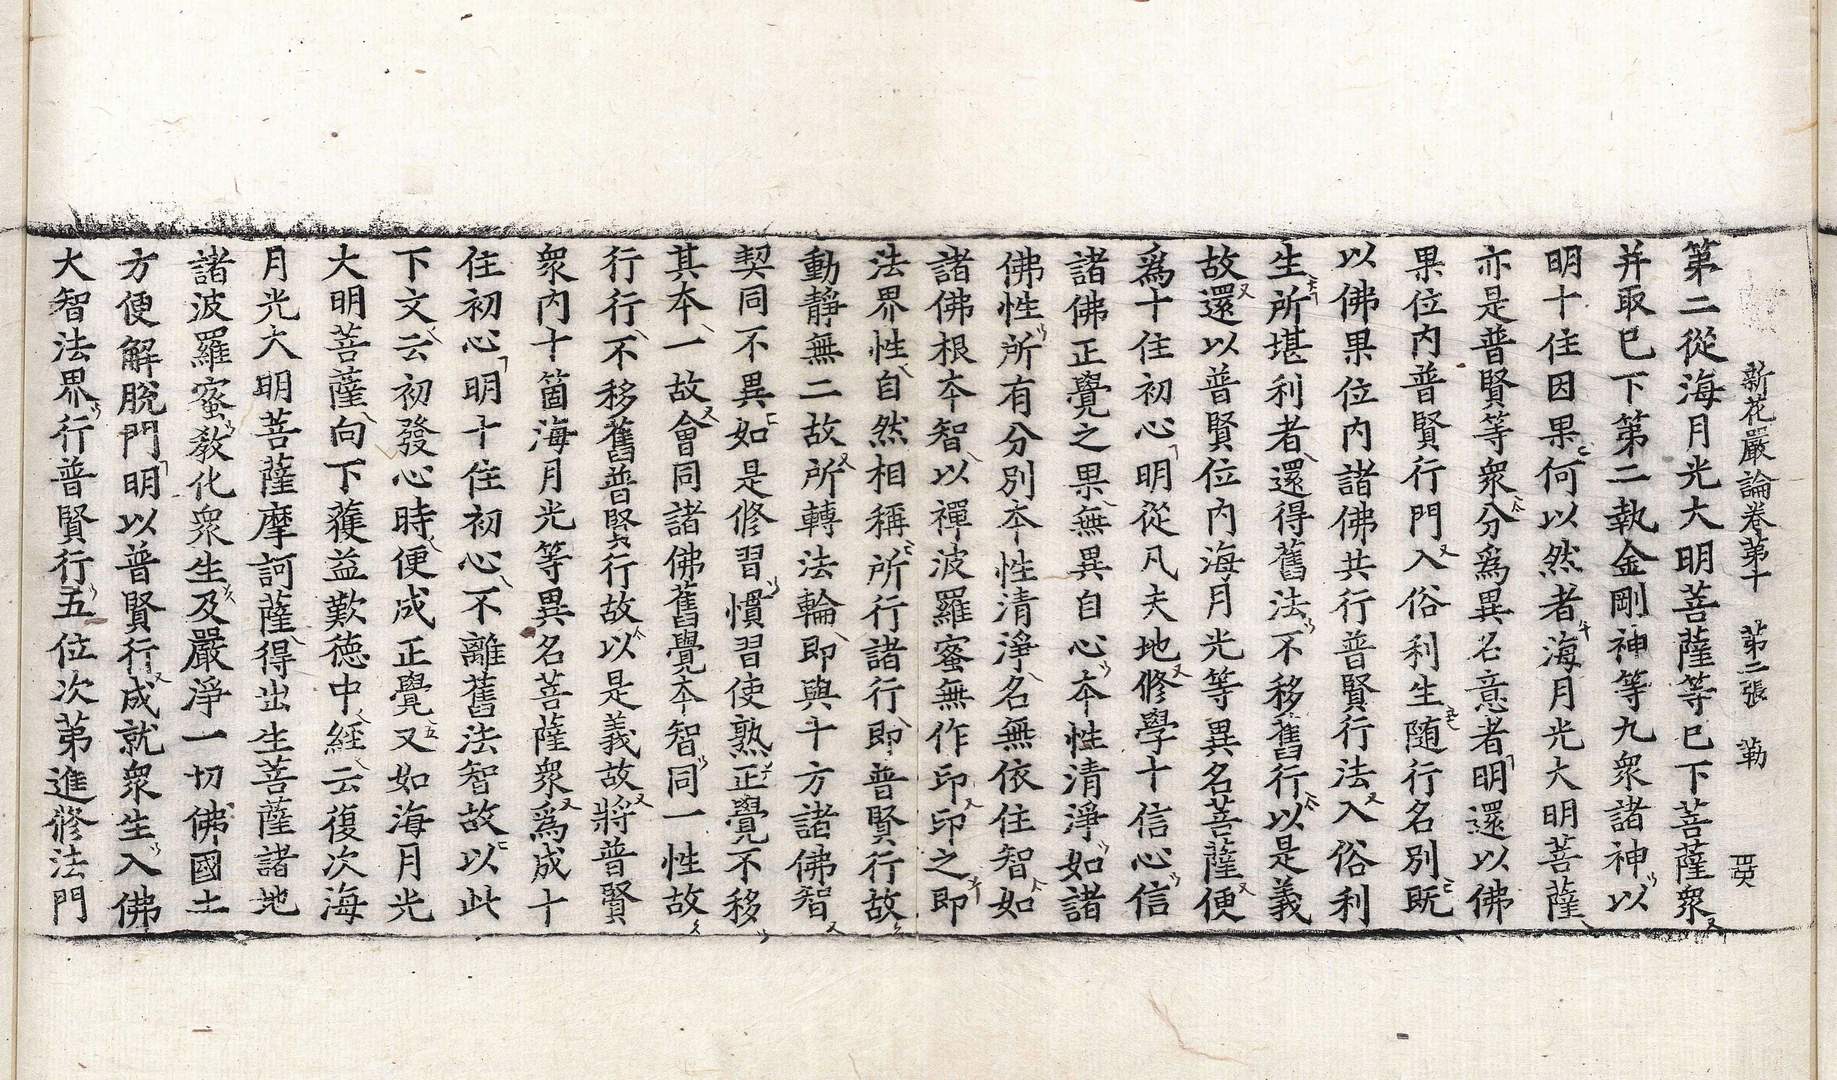 新花嚴論卷第十 第二張 勒
第二從海月光大明菩薩等已下菩薩衆
并取已下第二執金剛神等九衆諸神以
明十住因果何以然者海月光大明菩薩
亦是普賢等衆分爲異名意者明還以佛
果位内普賢行門入俗利生随行名別既
以佛果位内諸佛共行普賢行法入俗利
生所堪利者還得舊法不移舊行以是義
故還以普賢位内海月光等異名菩薩便
爲十住初心明從凡夫地修學十信心信
諸佛正覺之果無異自心本性清淨如諸
佛性所有分別本性清淨名無依住智如
諸佛根本智以禪波羅蜜無作印印之即
法界性自然相稱所行諸行即普賢行故
動靜無二故所轉法輪即與十方諸佛智
契同不異如是修習慣習使熟正覺不移
其本一故會同諸佛舊覺本智同一性故
行行不移舊普賢行故以是義故將普賢
衆内十箇海月光等異名菩薩衆爲成十
住初心明十住初心不離舊法智故以此
下文云初發心時便成正覺又如海月光
大明菩薩向下獲益歎徳中經云復次海
月光大明菩薩摩訶薩得出生菩薩諸地
諸波羅蜜教化衆生及嚴淨一切佛國土
方便解脫門明以普賢行成就衆生入佛
大智法界行普賢行五位次第進修法門